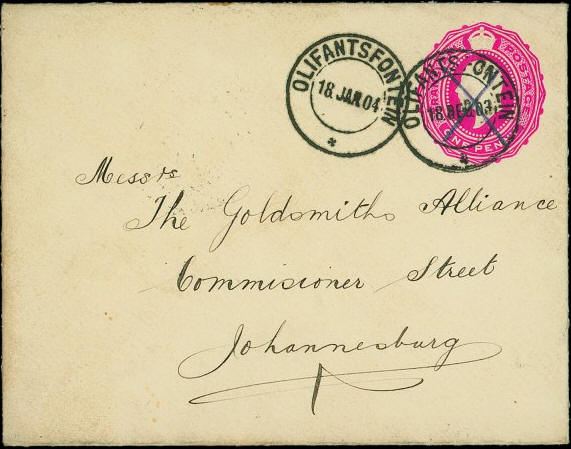 OLIFANTSFONTEIN
18 JAN 04
OLIFANTSFONTEIN
18 DEC 03
POSTAGE
ONE PENNY
Messrs
The Goldsmiths Alliance
Commisioner Street
Johannesburg